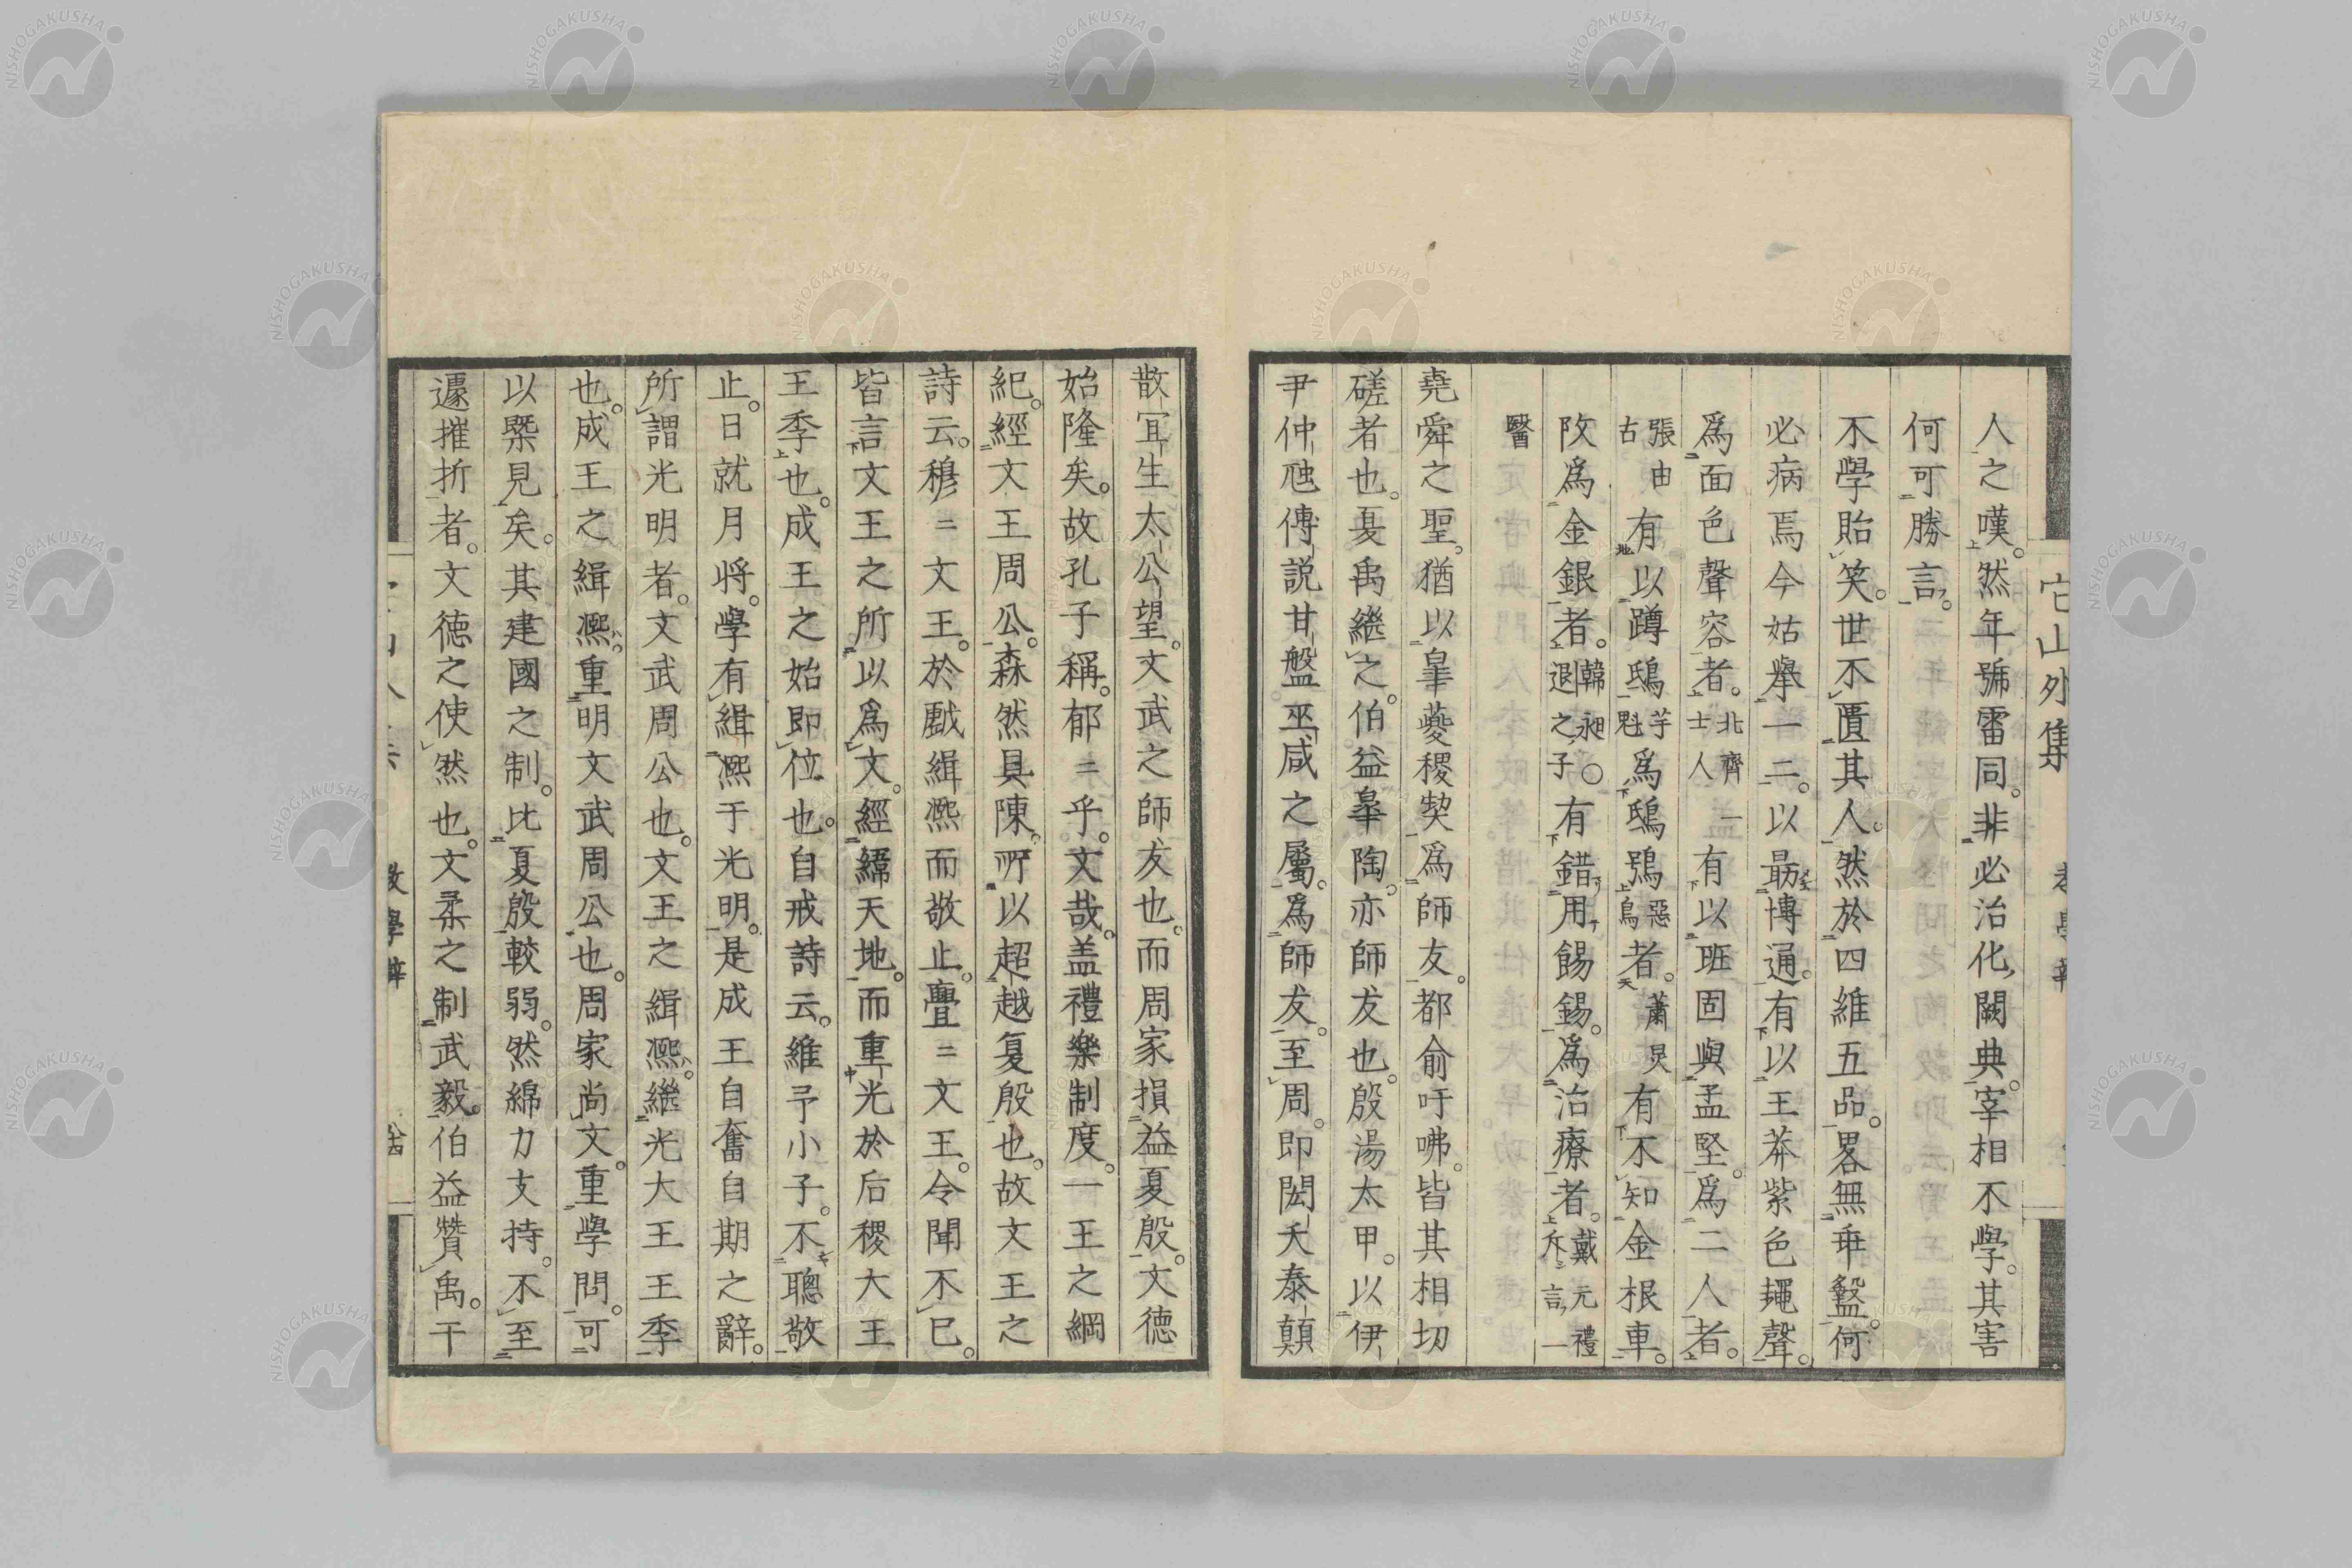 它山外集
人之嘆。然年號雷同。非必治化闕典。宰相不學。其害
何可勝言。
不學貽笑。世不匱其人。然於四維五品。畧無乖盭。何
必病焉今姑擧一二。以最博通。有以王莽紫色䵷聲。
爲面色聲容者。北齊士人一有以班固與孟堅。爲二人者。
張由古有以蹲鴟芋魁爲鴟鴞惡鳥者。蕭炅有不知金根車。
改爲金銀者。韓退之子昶○有錯用餳錫。爲治療者。戴元禮斥一
醫言
堯舜之聖。猶以皐夔稷契爲師友。都俞吁咈。皆其相切
磋者也。夏禹繼之。伯益皐陶。亦師友也。殷湯太甲。以伊
尹仲虺傅說甘盤巫咸之屬。爲師友。至周。卽閎夭泰顛
散宜生太公望。文武之師友也。而周家損益夏殷。文德
始隆矣。故孔子稱。郁〻乎。文哉。盖禮樂制度。一王之綱
紀。經文王周公。森然具陳。所以超越夏殷也。故文王之
詩云。穆〻文王。於戲緝熙而敬止。亹〻文王。令聞不已。
皆言文王之所以爲文。經緯天地。而重光於后稷大王
王季也。成王之始卽位也。自戒詩云。維予小子。不聰敬
止。日就月將。學有緝熙于光明。是成王自奮自期之辭。
所謂光明者。文武周公也。文王之緝熙。繼光大王王季
也。成王之緝熙。重明文武周公也。周家尚文。重學問。可
以槩見矣。其建國之制。比夏殷較弱。然綿力支持。不至
遽摧折者。文德之使然也。文柔之制武毅。伯益贊禹。干